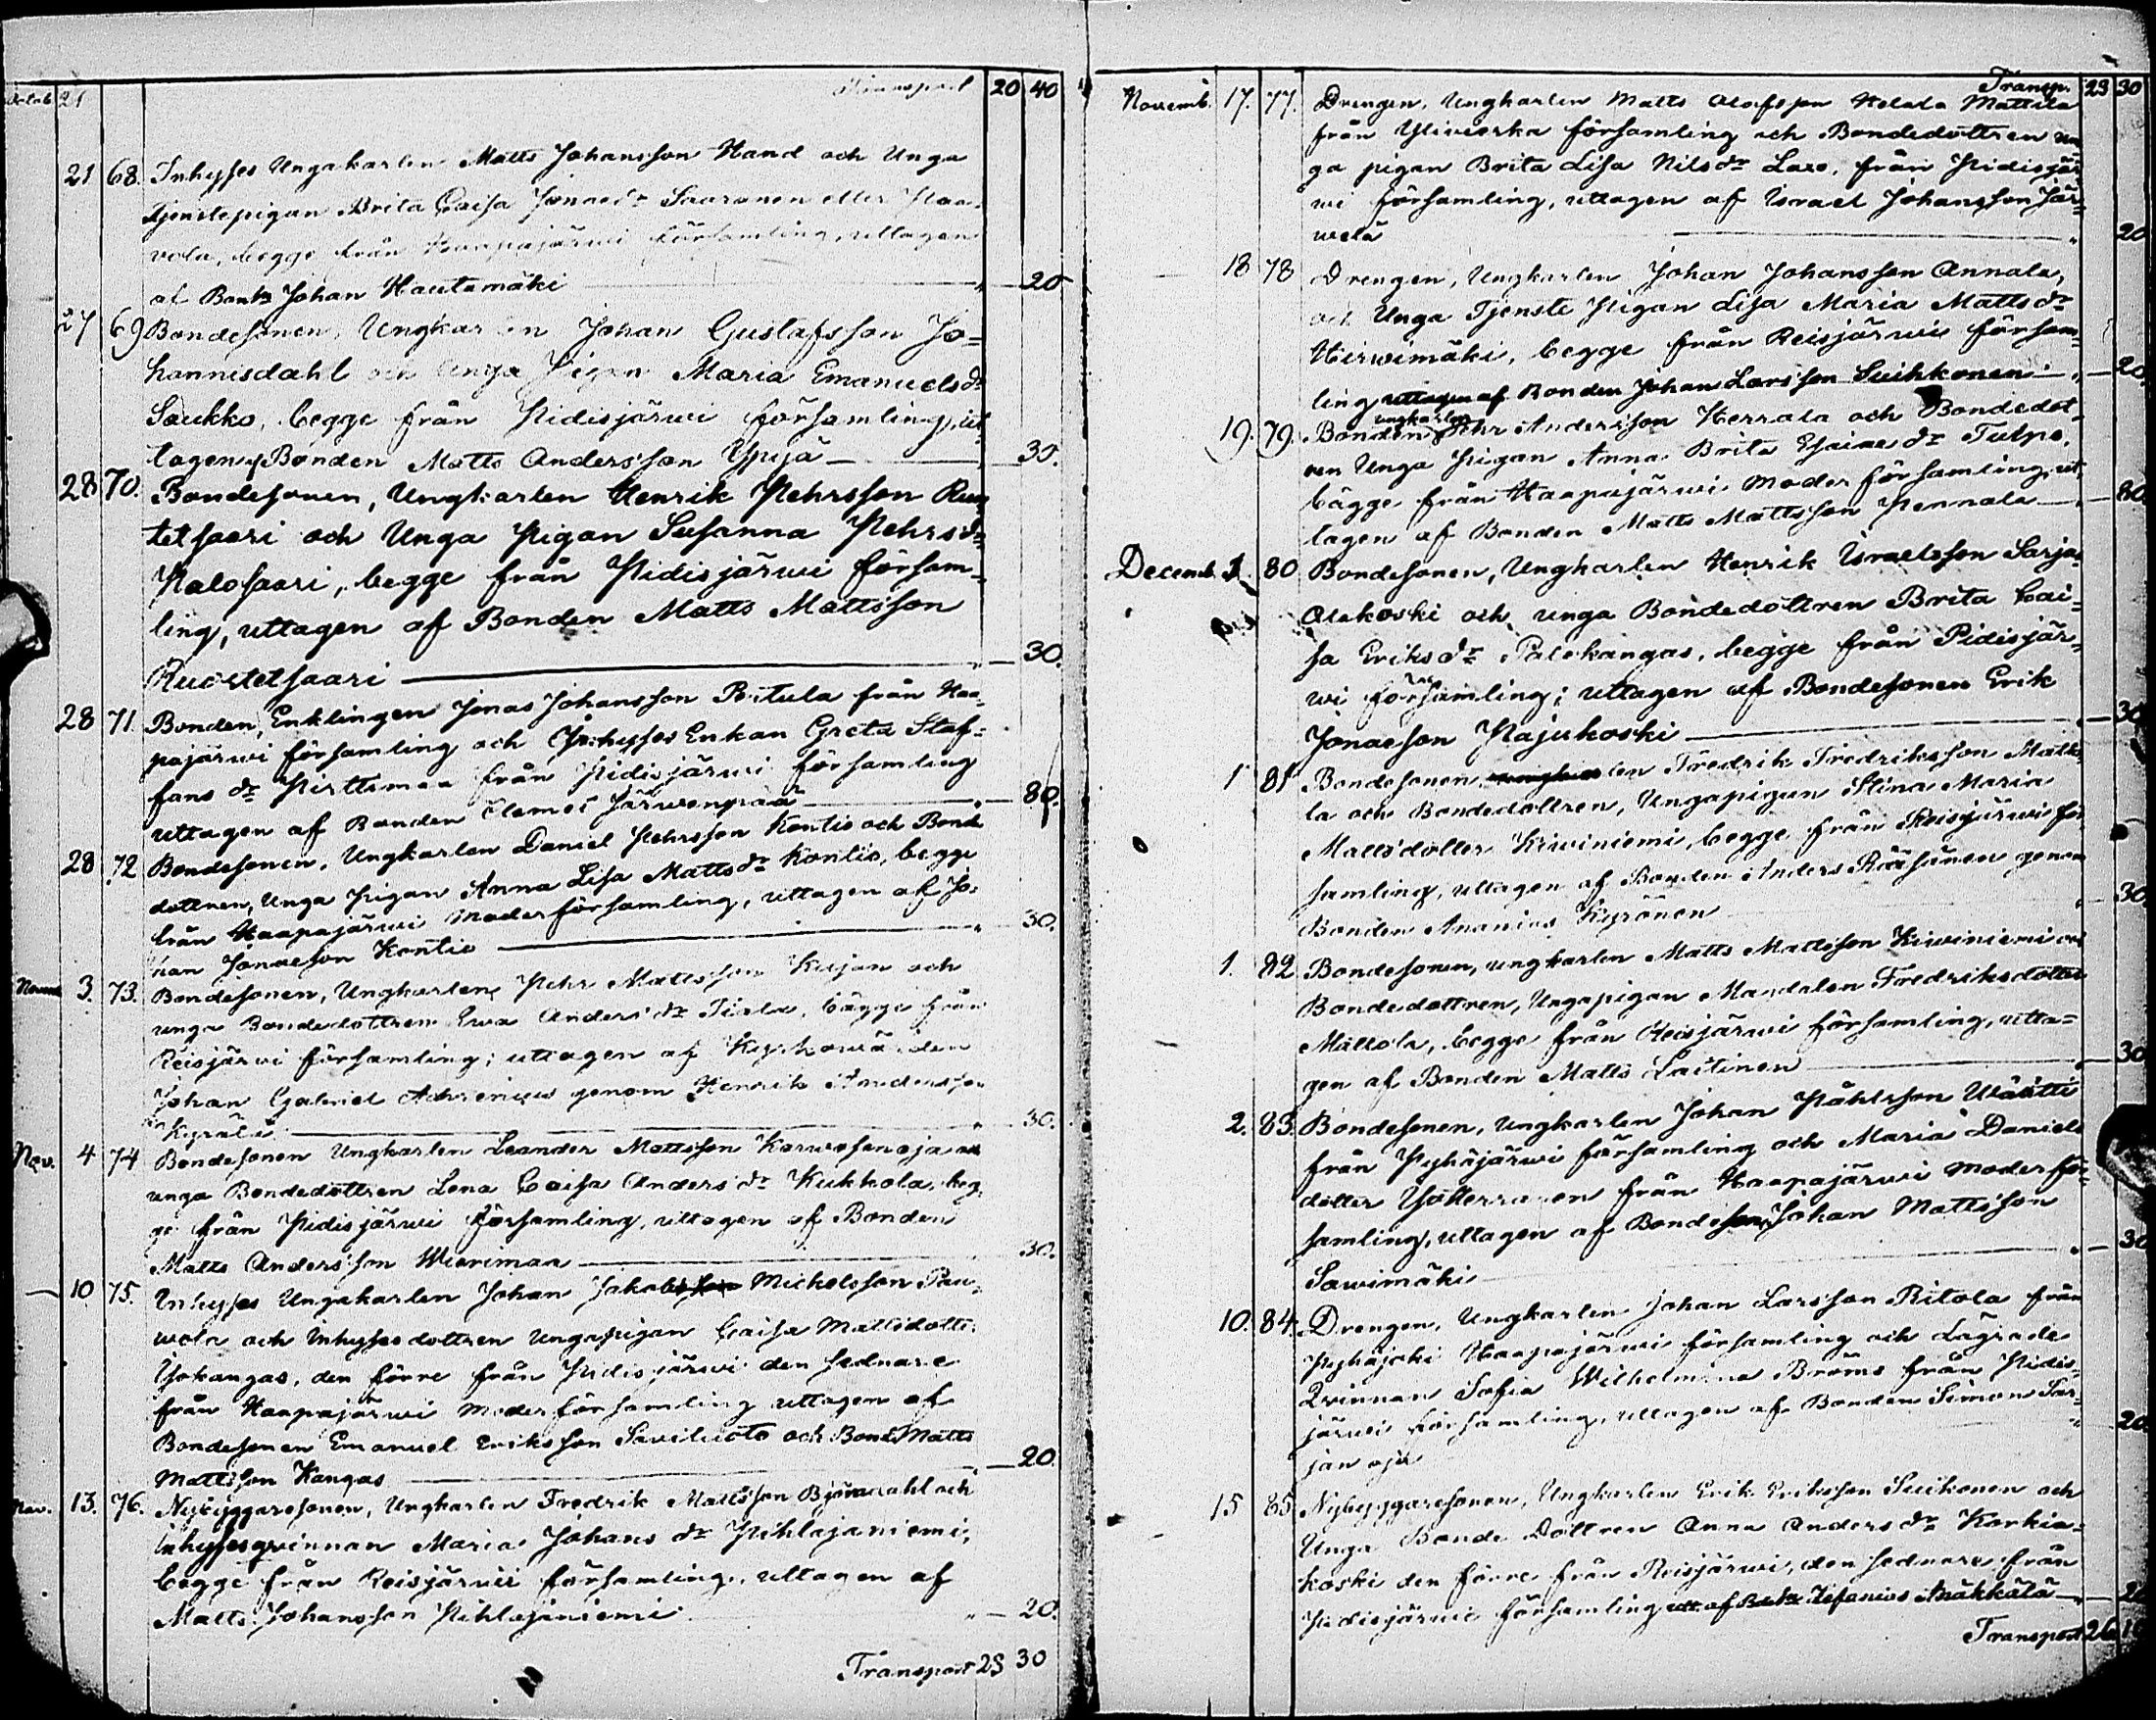 Octob. 21 Transport 20 40
21 68. Inhyses Ungakarlen Matts Johansson Hand och Unga
Tjenstepigan Brita Caisa Jonaed:r Saaranen eller Haa-
vola, begge från Haapajärwi församling, uttagen
af Bond:n Johan Hautamäki " 20
27 69 Bondesonen, Ungkarlen Johan Gustafsson Jo=
hannisdahl och Unga Pigan Maria Emanuelsd:r
Saukko, begge från Pidisjärwi församling, ut-
tagen af Bonden Matts Andersson Ypyä — 30.
28 70. Bondesonen, Ungkarlen Henrik Pehrsson Ruos
tetsaari och Unga Pigan Susanna Pehrsd:r
Palosaari, begge från Pidisjärwi försam-
ling, uttagen af Bonden Matts Mattsson
Ruostetsaari — 30.
28 71. Bonden, Enklingen Jonas Johansson Ritula från Haa-
pajärwi församling och Inhyses Enkan Greta Staf-
fans d:r Pirttimaa från Pidisjärwi församling
uttagen af Bonden Clemet Järwenpää — 80.
28 72 Bondesonen, Ungkarlen Daniel Pehrsson Kontio och Bonde
dottren, Unga Pigan Anna Lisa Mattsd:r Kontio, begge
från Haapajärwi Moderförsamling, uttagen af Jo-
han Jonaeson Kontio — 30.
Novemb. 3. 73. Bondesonen, Ungkarlen Pehr Mattsson Kujan och
unga Bondedottren Ewa Andersd:r Tiala, bägge från
Reisjärwi församling; uttagen af Kyrkowärden
Johan Gabriel Achrenius genom Henrik Andersson
Kyrälä — 30.
Nov. 4 74 Bondesonen Ungkarlen Leander Mattsson Karwosenoja och
unga Bondedottren Lena Caisa Andersd:r Kukkola, beg-
ge från Pidisjärwi församling, uttagen af Bonden
Matts Andersson Wierimaa — 30.
— 10 75. Inhyses Ungakarlen Johan Jakobsson Michelsson Pau-
wola och Inhysesdottren Ungapigan Caisa Mattsdotter
Ypokangas, den förre från Pidisjärwi den sednare
från Haapajärwi Moderförsamling uttagen af
Bondesonen Emanuel Eriksson Saviluoto och Bond. Matts
Mattsson Kangas — 20.
Nov. 13. 76. Nybyggaresonen, Ungkarlen Fredrik Mattsson Björndahl och
Inhysesqvinnan Maria Johans d:r Pihlajaniemi,
begge från Reisjärwi församling, uttagen af
Matts Johansson Pihlajaniemi " — 20.
Transport 23 30
Transp. 23 30
Novemb. 17. 77. Drengen, Ungkarlen Matts Olofsson Helala Mattila
från Ylivieska församling och Bondedottren un
ga pigan Brita Lisa Nilsd:r Laxo, från Pidisjär
wi församling, uttagen af Israel Johansson Jär-
welä — 20
18 78 Drengen, Ungkarlen Johan Johansson Annala,
och Unga Tjenste Pigan Lisa Maria Mattsd:r
Hirwimäki, begge från Reisjärwi försam-
ling uttagen af Bonden Johan Larsson Suihkonen — 20
19. 79. Bonden ungkarlen Pehr Andersson Herrala och Bondedot-
ren Unga Pigan Anna Brita Esaiae d:r Tulpo,
bägge från Haapajärwi Moder församling, ut
tagen af Bonden Matts Mattsson Pennala — 80
Decemb. 1. 80 Bondesonen, Ungkarlen Henrik Israelsson Sarja-
Olakoski och unga Bondedottren Brita Cai-
sa Eriksd:r Palokangas, begge från Pidisjär-
wi församling; uttagen af Bondesonen Erik
Jonaeson Pajukoski — 30
1 81 Bondesonen, ungkarlen Fredrik Fredriksson Matto
la och Bondedottren, Ungapigan Stina Maria
Mattsdotter Kiwiniemi, begge från Reisjärwi för
samling, uttagen af Bonden Anders Räisänen genom
Bonden Ananias Kyrönen — 30
1. 82 Bondesonen, ungkarlen Matts Mattsson Kiwiniemi och
Bondedottren, Ungapigan Magdalen Fredriksdotter
Mattola, begge från Reisjärwi församling, utta=
gen af Bonden Matts Laitinen — 30
2. 83. Bondesonen, Ungkarlen Johan Påhlsson Wäätti
från Pyhäjärwi församling och Maria Daniels
dotter från Haapajärwi Moder för-
samling, uttagen af Bondeson Johan Mattsson
Sawimäki — 30
10. 84. Drengen, Ungkarlen Johan Larsson Ritola från
Pyhäjoki Haapajärwi församling och Lägrade
Qvinnan Sofia Wilhelmina Broms från Pidis-
järwi församling, uttagen af Bonden Simon Sar-
jan oja — 20
15 85 Nybyggaresonen, Ungkarlen Erik Eriksson Suikonen och
Unga Bonde Dottren Anna Andersd:r Karkia-
koski den förre från Reisjärwi, den sednare från
Pidisjärwi församling utt. af Bonden Zefanias Mäkkälä — 20
Transport 26 10